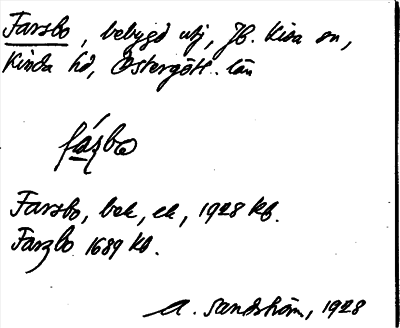 Farsbo, bebygd utj, Jb. Kisa sn,
Kinda hd, Östergötl. län
fá̱zbo
Farsbo, bok, ek, 1928 kb.
Farzbo 1689 kb.
A. Sandström, 1928